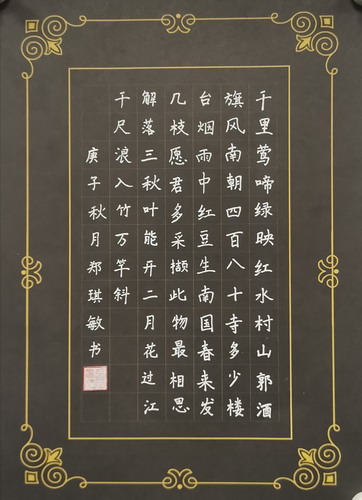 千里莺啼绿映红水村山郭酒
旗风南朝四百八十寺多少楼
台烟雨中红豆生南国春来发
几枝愿君多采撷此物最相思
解落三秋叶能开二月花过江
千尺浪入竹万竿斜
庚子秋月郑琪敏书